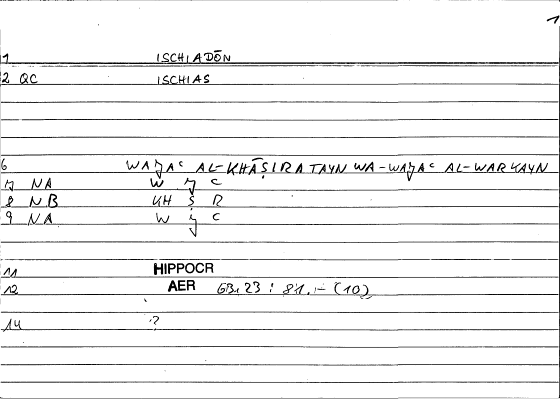 1
1 ISCHIADŌN
2 QC ISCHIAS
6 WAǦAʿ AL-KHĀṢIRATAYN WA-WAǦAʿ AL-WARKAYN
7 NA W Ǧ ʿ
8 NB KH Ṣ R
9 NA W Ǧ ʿ
11 HIPPOCR
12 AER
14 ?